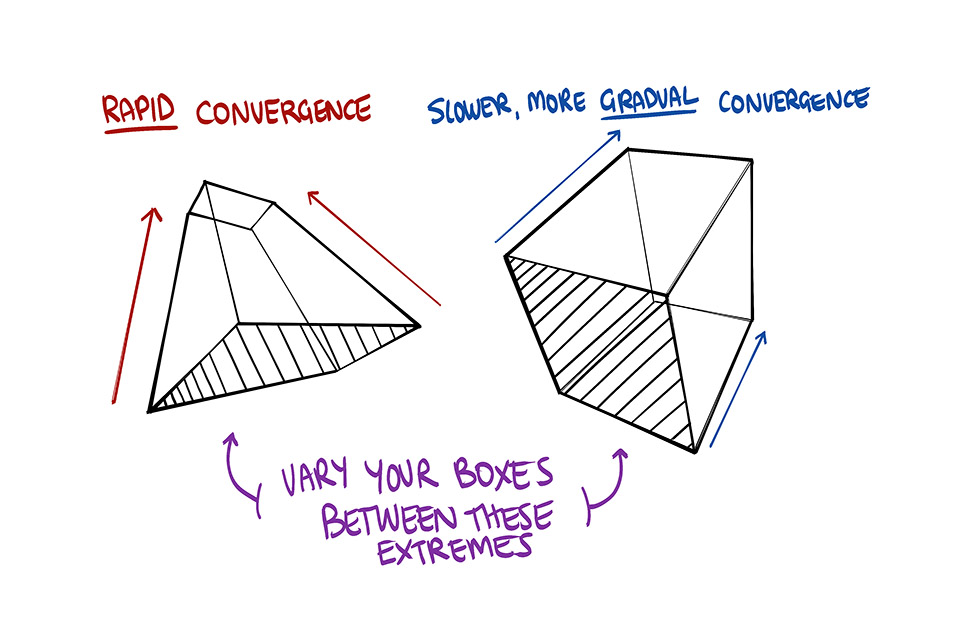 RAPID CONVERGENCE
SLOWER, MORE GRADUAL CONVERGENCE
VARY YOUR BOXES
BETWEEN THESE
EXTREMES